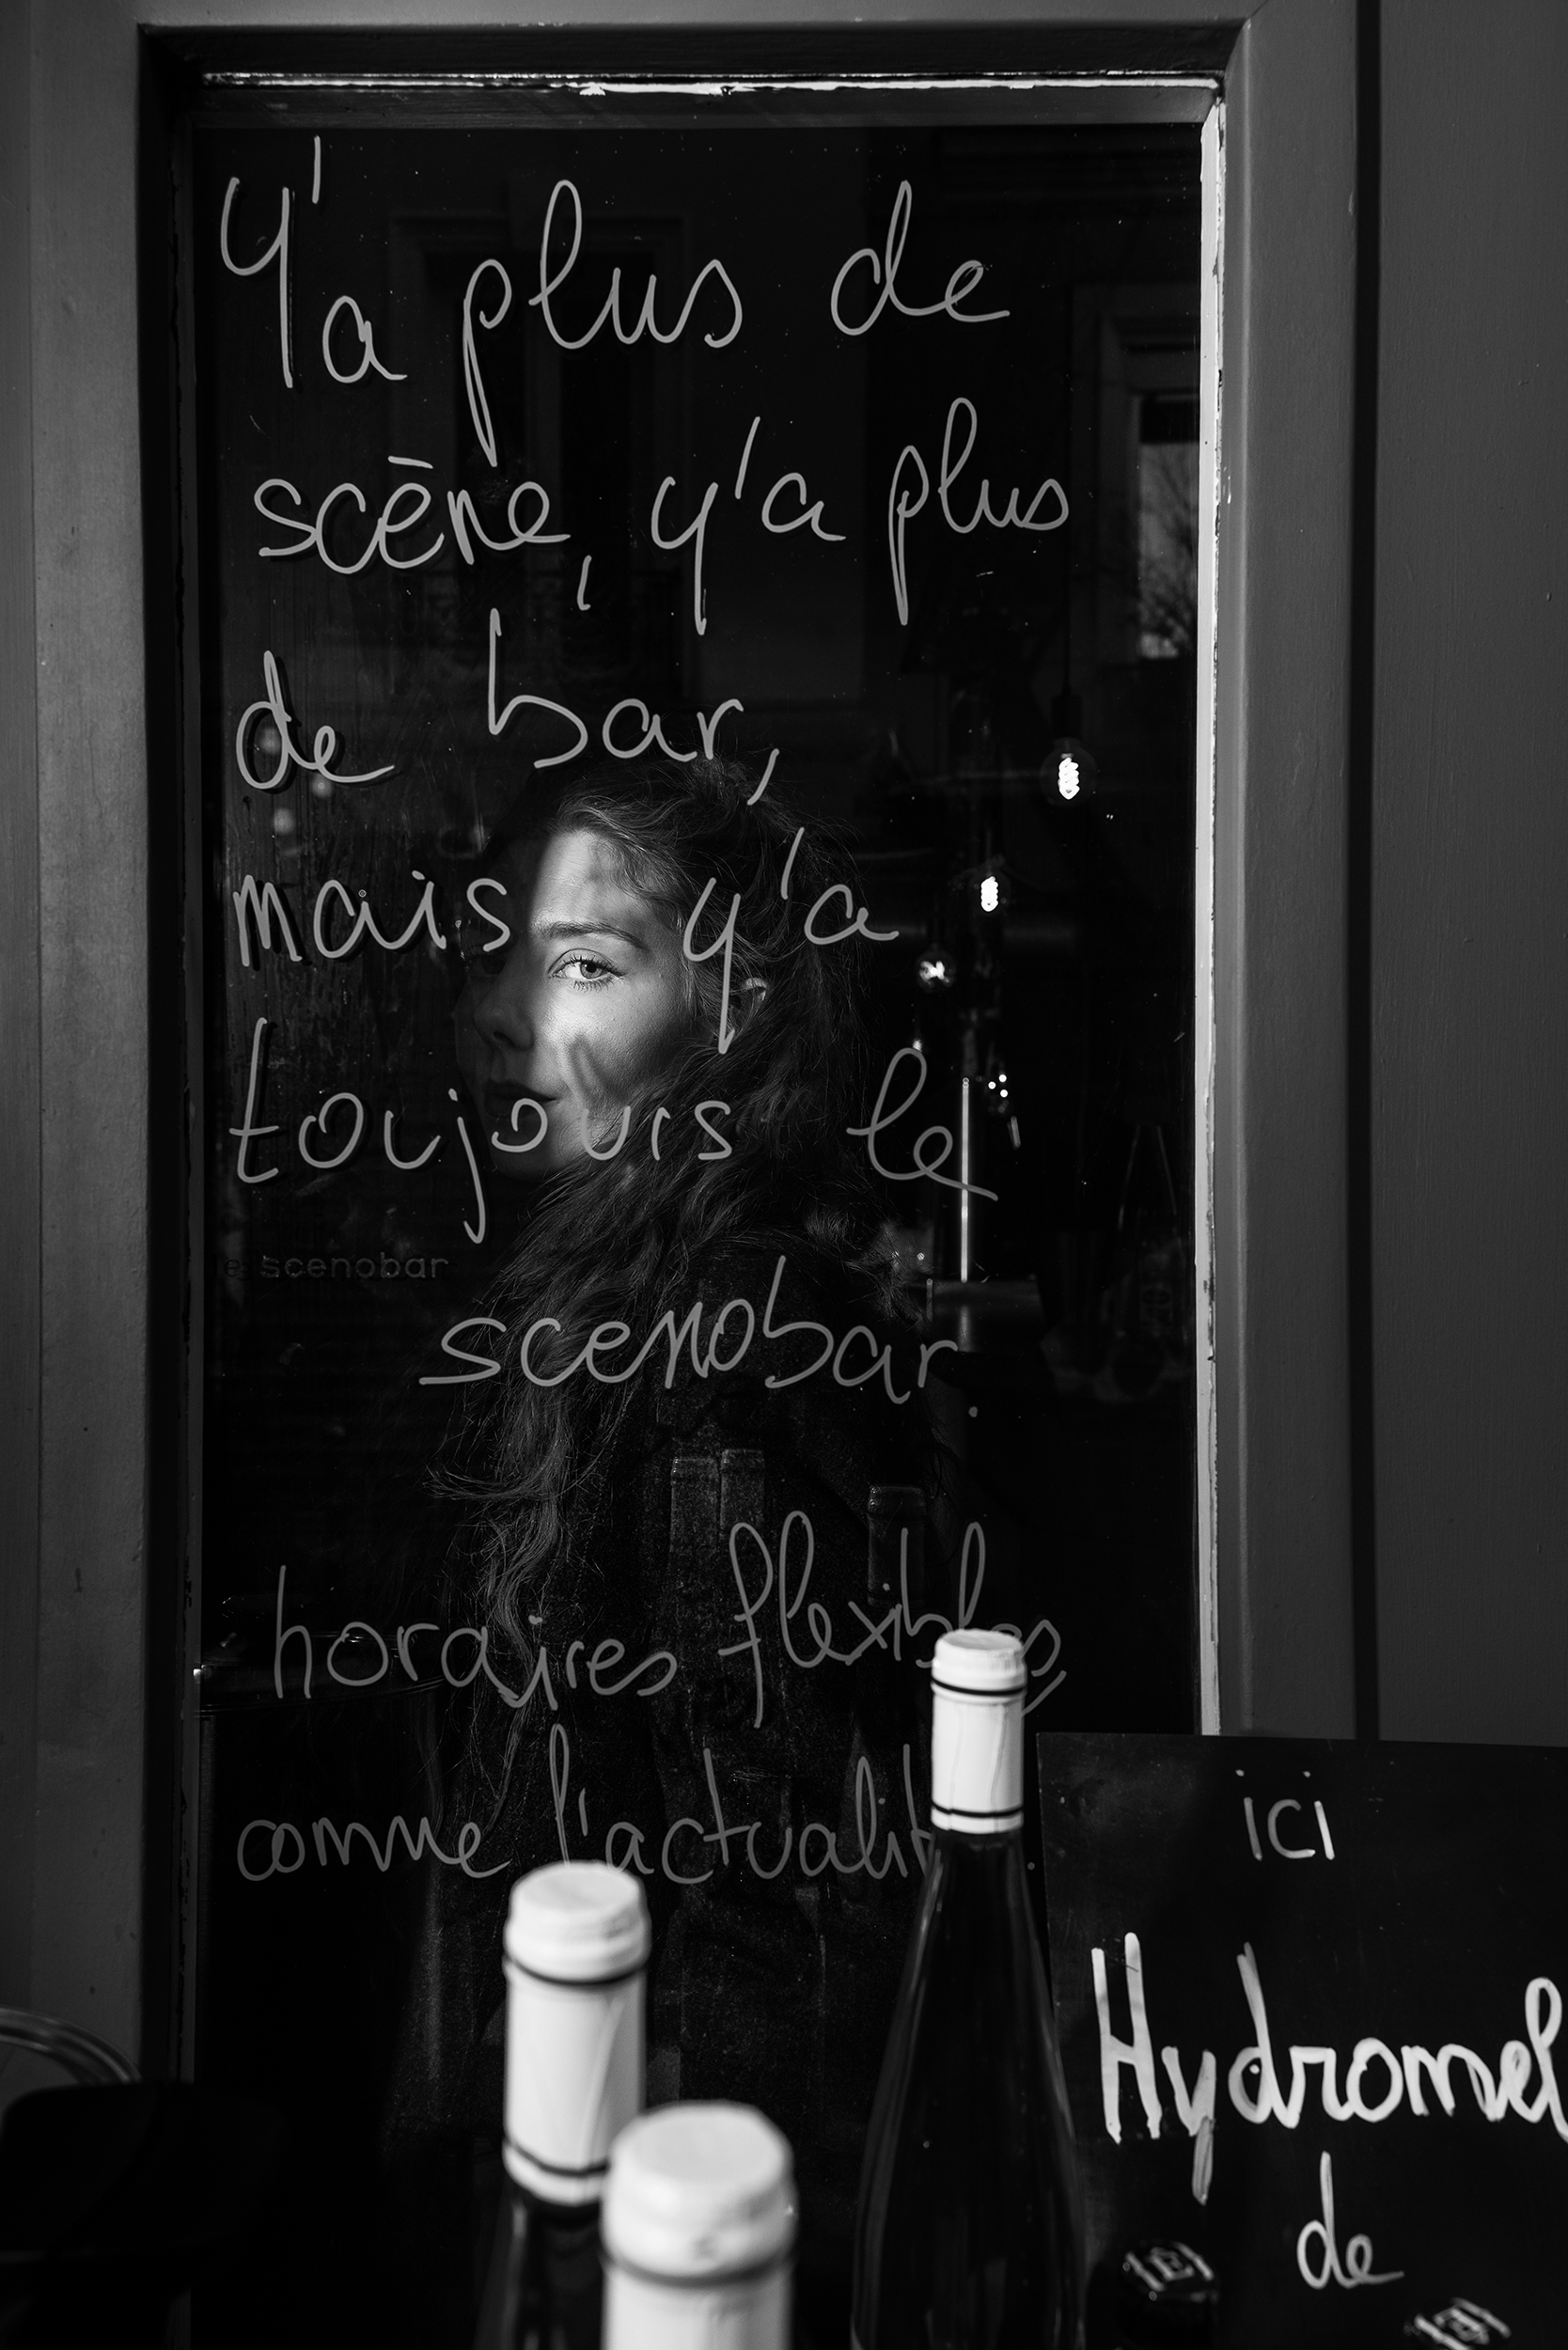 Y'a plus de
scène, y'a plus
de bar,
mais y'a
toujours le
e scenobar
scenobar
horaires flexibles
comme l'actualit
ici
Hydromel
de